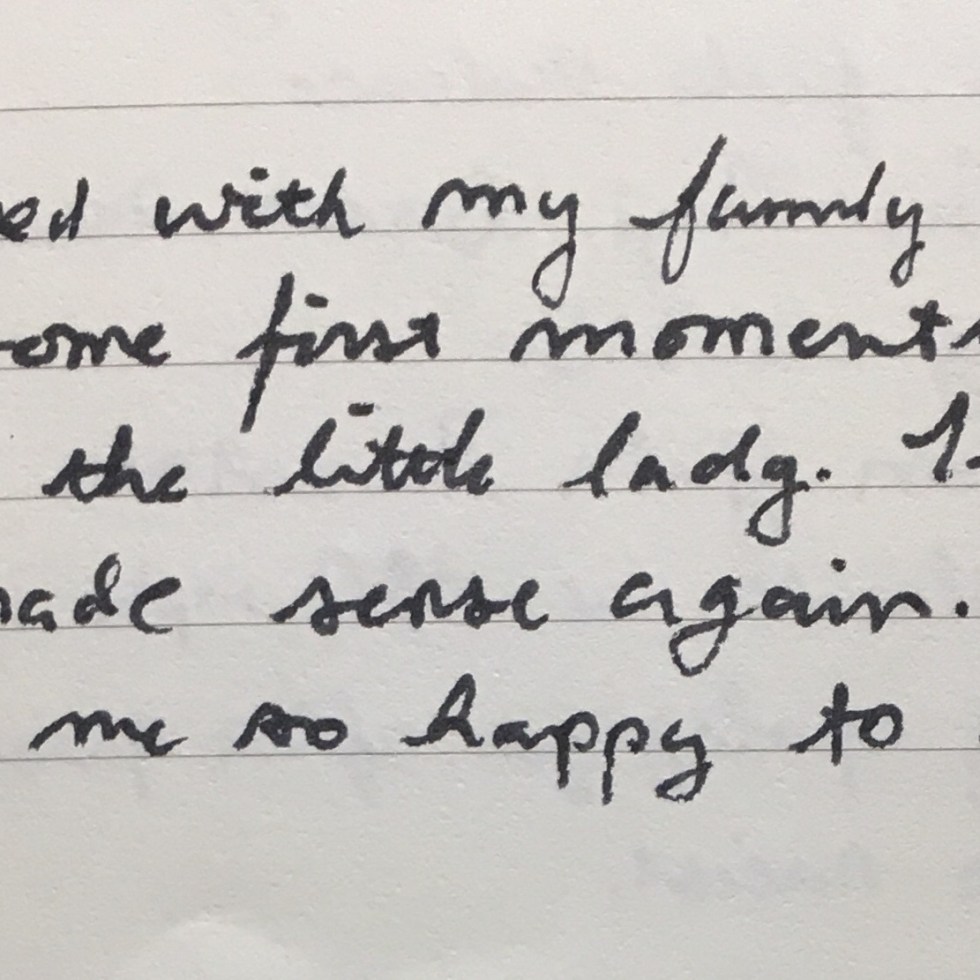 ed with my family
ome first moments
the little lady. I
ade sense again.
me so happy to